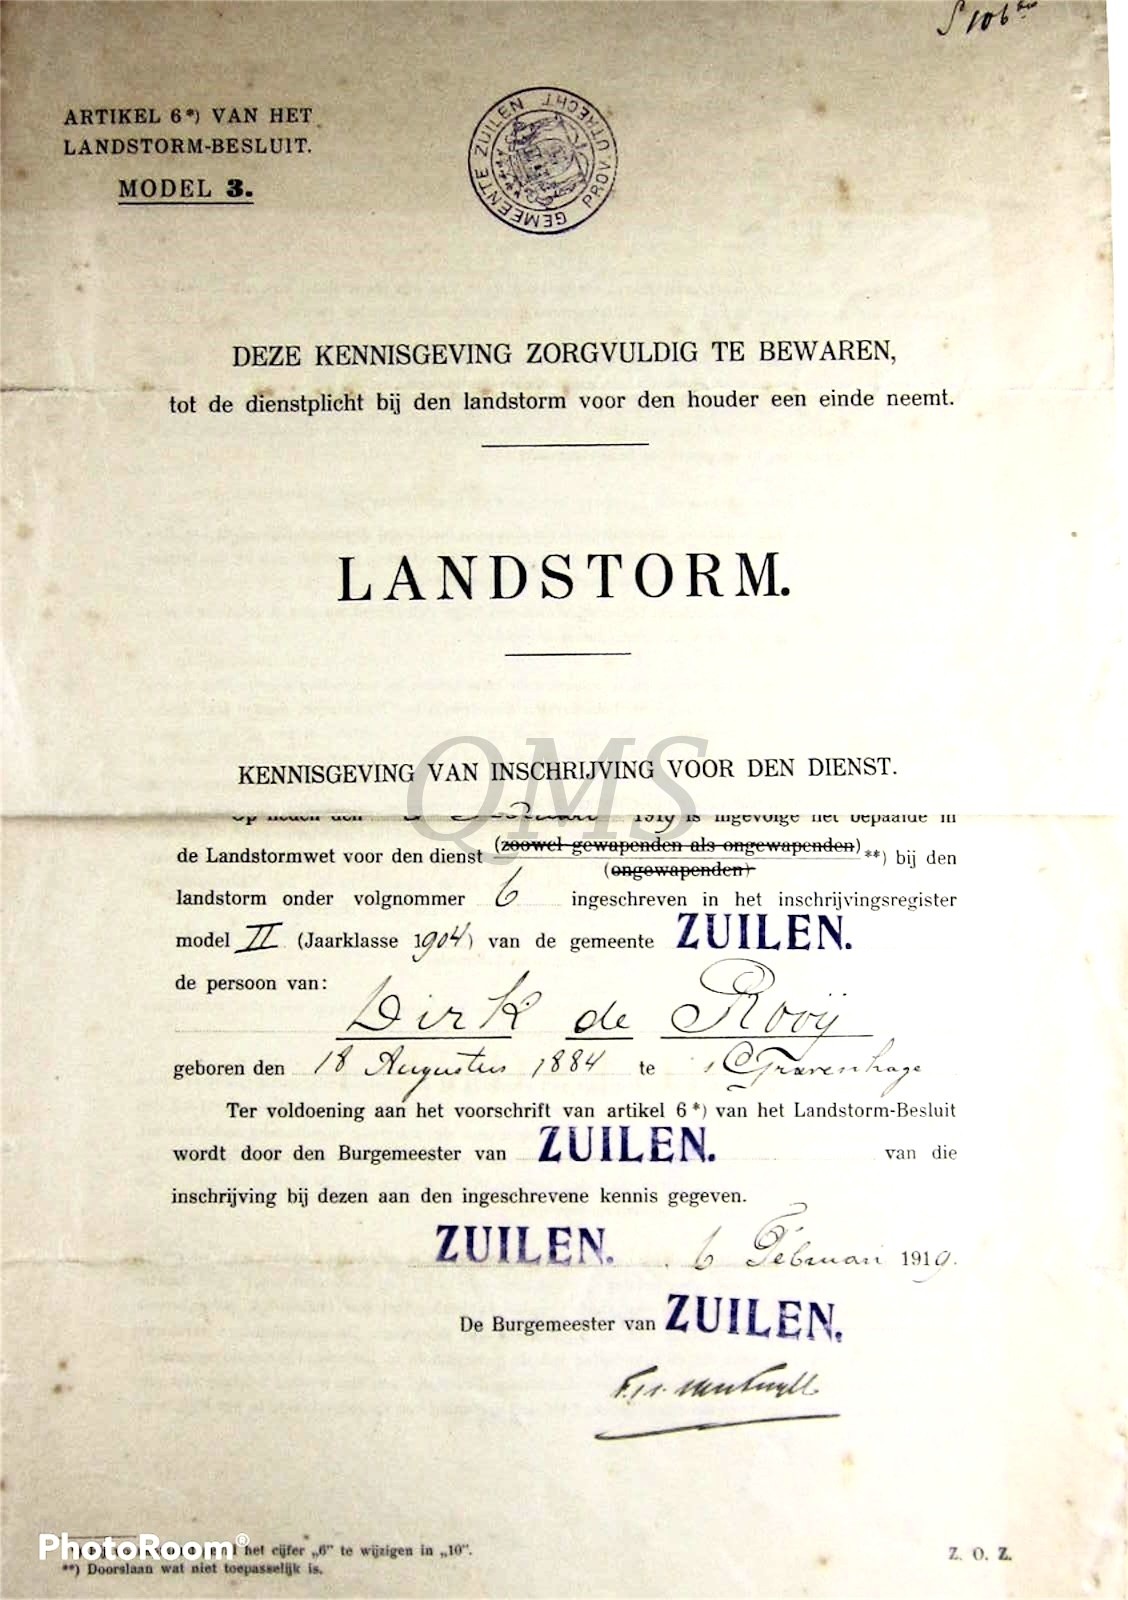 S 106 bis
ARTIKEL 6*) VAN HET
LANDSTORM-BESLUIT.
MODEL 3.
GEMEENTE ZUILEN PROV. UTRECHT
DEZE KENNISGEVING ZORGVULDIG TE BEWAREN,
tot de dienstplicht bij den landstorm voor den houder een einde neemt.
LANDSTORM.
QMS
KENNISGEVING VAN INSCHRIJVING VOOR DEN DIENST.
Op heden den 1919 is ingevolge het bepaalde in
de Landstormwet voor den dienst (zoowel gewapenden als ongewapenden) **) bij den
(ongewapenden)
landstorm onder volgnommer 6 ingeschreven in het inschrijvingsregister
model II (Jaarklasse 1904) van de gemeente ZUILEN.
de persoon van:
Dirk de Rooij
geboren den 18 Augustus 1884 te 's Gravenhage
Ter voldoening aan het voorschrift van artikel 6*) van het Landstorm-Besluit
wordt door den Burgemeester van ZUILEN. van die
inschrijving bij dezen aan den ingeschrevene kennis gegeven.
ZUILEN. 6 Februari 1919.
De Burgemeester van ZUILEN.
PhotoRoom®
het cijfer „6" te wijzigen in „10".
**) Doorslaan wat niet toepasselijk is.
Z. O. Z.